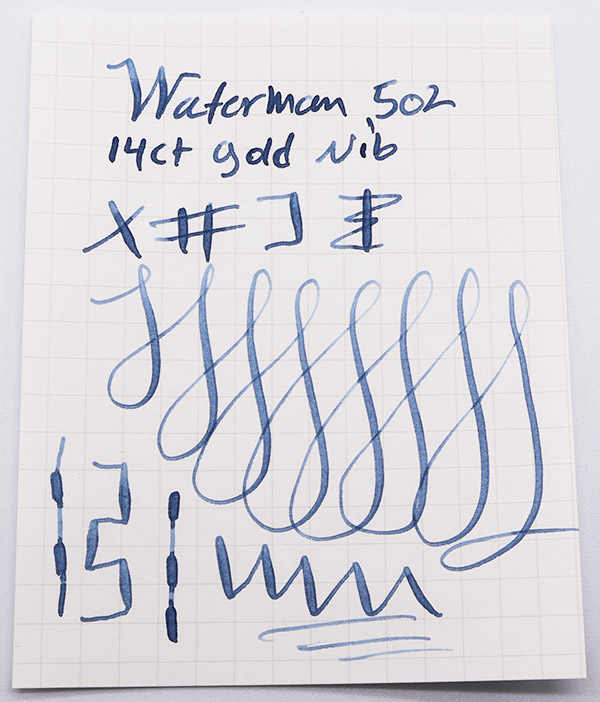 Waterman 502
14ct gold Nib